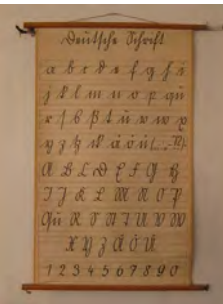 Deutsche Schrift
a b c d e f g h i
j k l m n o p qu
r s ß t u v w x
y z ä ö ü
A B C D E F G H
I J K L M N O P
Qu R S T U V W
X Y Z Ä Ö Ü
1 2 3 4 5 6 7 8 9 0